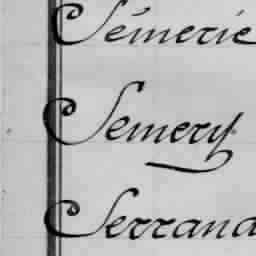 Sémerie
Semery.
Serrand